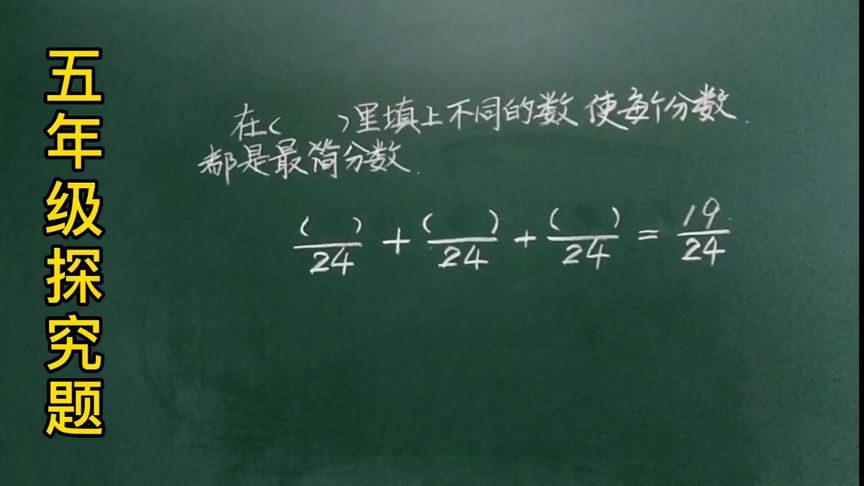 五年级探究题
在( )里填上不同的数 使每个分数
都是最简分数.
( )/24 + ( )/24 + ( )/24 = 19/24